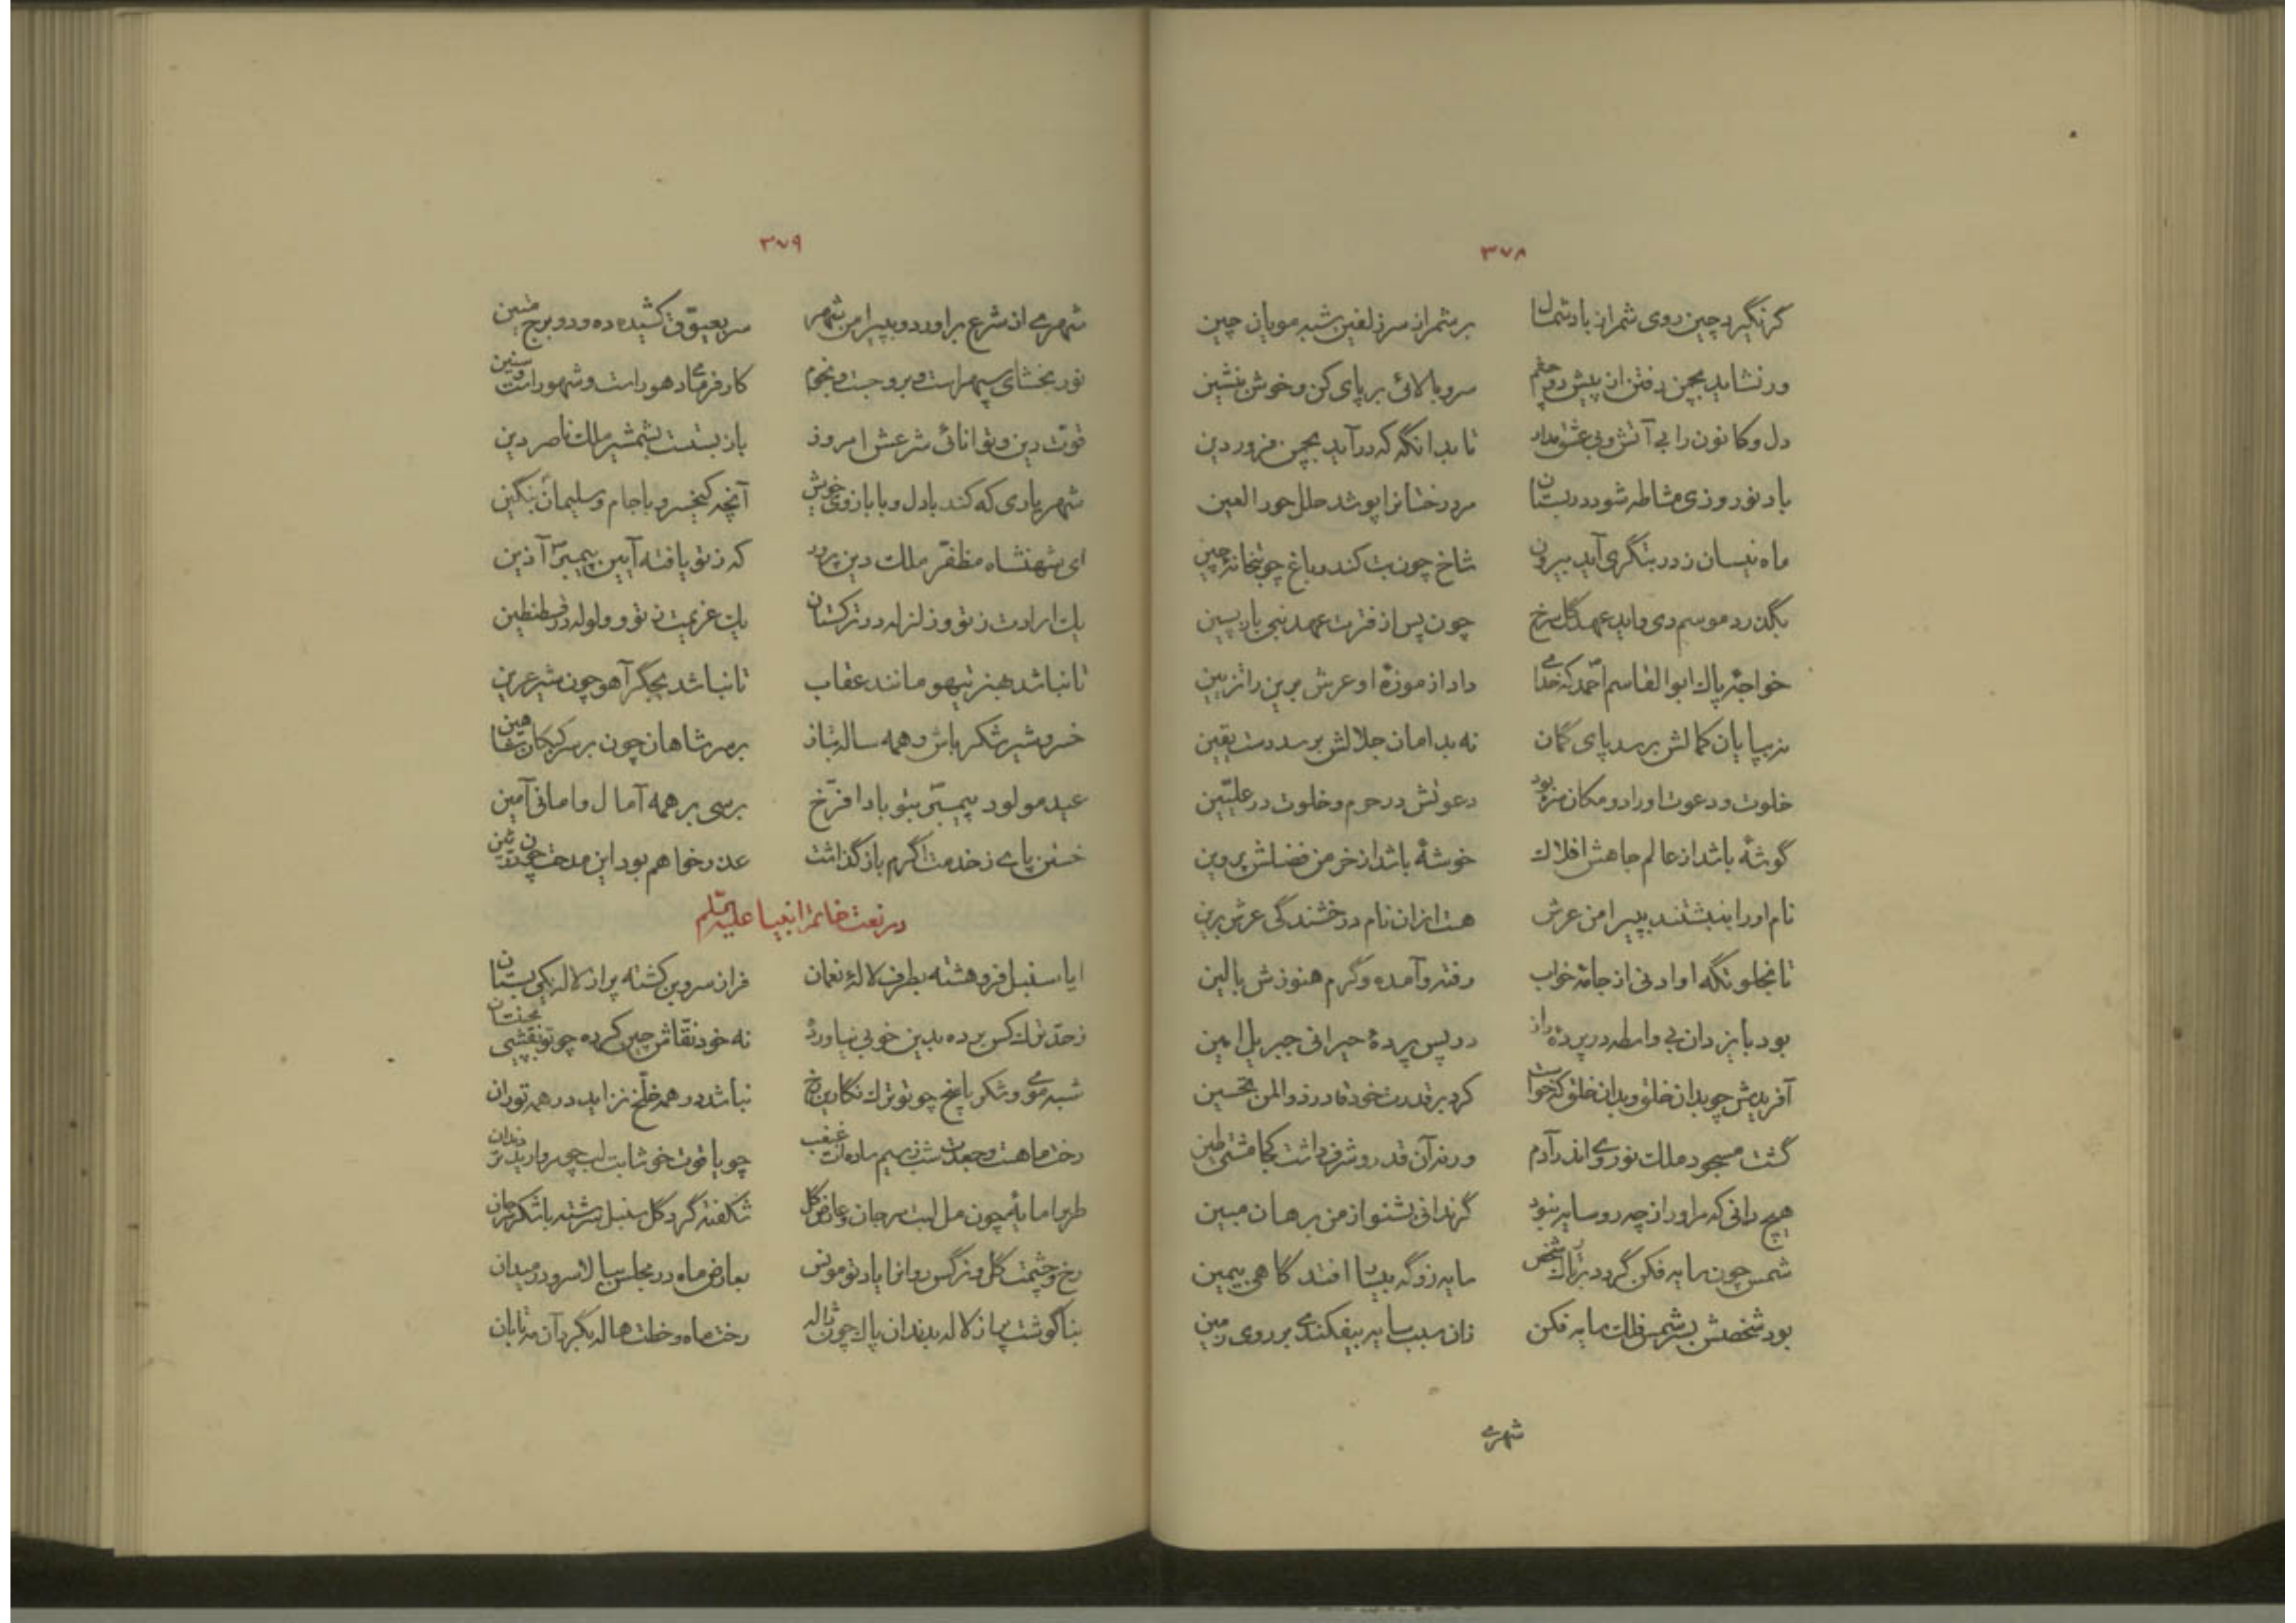 ۳۷۸
گر نگیرد چین روی شمر از باد شمال بر شمر از سر زلفین شبه مویان چین
ور نشاید بچمن رفتن ازین پیش سرو بالائی بر پای کن و خوش بنشین
دل و کانون را بی آتش و بی عشق مدار تا بدانگه که درآید بچمن فروردین
باد نوروزی مشاطه شود در بستان مر درختانرا پوشد حلل حور العین
ماه نیسان زدر بتگری آید بیرون شاخ چون بت کند و باغ چو بتخانهٔ چین
بگذرد موسم دی واید عهد گل سرخ چون پس از فترت عهد نبی بازپسین
خواجهٔ پاک ابوالقاسم احمد که خدای داد از موزهٔ او عرش برین را تزیین
نه بپایان کمالش برسد پای گمان نه بدامان جلالش برسد دست یقین
خلوت و دعوت او را دو مکان مزد بود دعوتش در حرم و خلوت در علیّین
گوشهٔ باشد از عالم جاهش افلاک خوشهٔ باشد از خرمن فضلش پروین
نام او را بنبشتند بپیرامن عرش هست ازان نام درخشندگی عرش برین
تا بخلوتگه او ادنی از جامهٔ خواب رفته و آمده و گرم هنوزش بالین
بود با یزدان بی واسطه در پردهٔ راز در پس پردهٔ حیرانی جبریل امین
آفریدش چو بدان خلق و بدان خلق که خواست کرد بر قدرت خود قادر ذوالمن تحسین
گشت مسجود ملک نور وی اندر آدم ورنه آن قدر و شرف داشت کجا مشتی طین
هیچ دانی که مر او را زچه رو سایه نبود گر ندانی بشنو از من برهان مبین
شمس چون سایه فکن گردد بر تارک شخص سایه زو گه بیسار افتد گاهی بیمین
بود شخصش بسر شمس فلک سایه فکن زان سبب سایه بیفکندی بر روی زمین
شهری
۳۷۹
شهری از شرع براورد و بپیرامن شهر سر بعیّوق کشیده ده و دو برج متین
نور بخشای سپهر است و بروجست و نجوم کار فرمای دهور است و شهور است و سنین
قوّت دین و توانائی شرعش امروز باز بستست بشمشیر ملک ناصر دین
شهریاری که کند با دل و با بازوی خویش آنچه کیخسرو با جام و سلیمان بنگین
ای شهنشاه مظفّر ملک دین پرور که زتو یافته آیین پیمبر آذین
یک ارادت زتو و زلزله در ترکستان یک عزیمت زتو و ولوله در قسطنطین
تا نباشد بهنر تیهو مانند عقاب تا نباشد بجگر آهو چون شیر عرین
خسرو شیر شکر باش و همه ساله بتاز بر سر شاهان چون بر سر کبکان شاهین
عید مولود پیمبّر بتو بادا فرّخ برسی بر همه آمال و امانی آمین
خستن پای زخدمت اگرم باز گذاشت عذر خواهم بود این مدحت چون درّ ثمین
در نعت خاتم انبیا علیه السّلم
ایا سنبل فرو هشته بطرف لالهٔ نعمان فراز سرو بن کشته پر از لاله یکی بستان
زحدّ ترک کس برده بدین خوبی نیاورد نه خود نقّاش چین کرده چو تو نقشی
شبه موی و شکر پاسخ چو تو ترک نگارین رخ نباشد در همه خلّخ نزاید در همه توران
رخت ماهست و جعدت شب زسیم ساده‌ات غبغب چو یاقوت خوشابت لب چو مروارید تر دندان
طرب را مایهٔ چون مل لبت مرجان و عارض گل شکفته گرد گل سنبل سرشته با شکر مرجان
رخ و چشمت گل و نرگس روانرا یاد تو مونس بعارض ماه در مجلس ببالا سرو در میدان
بناگوشت پر از لاله بدندان پاک چون ژاله رخت ماه و خطت هاله بگرد آن مه تابان